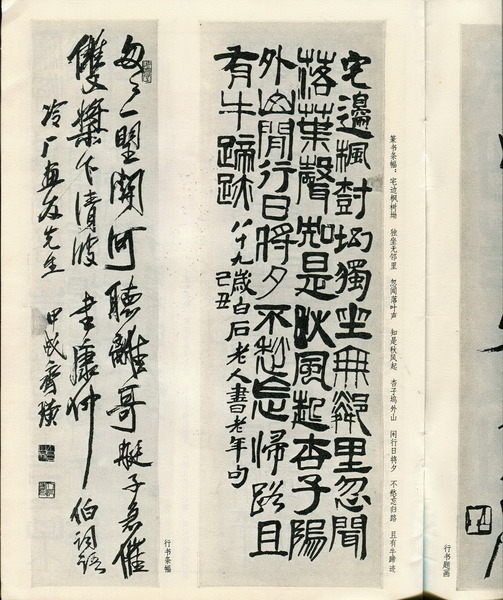 行书题画
篆书条幅：宅边枫树坳 独坐无邻里 忽闻落叶声 知是秋风起 杏子坞外山 闲行日将夕 不愁忘归路 且有牛蹄迹
宅邊楓樹坳獨坐無鄰里忽聞
落葉聲知是秋風起杏子隖
外山閒行日將夕不愁忘歸路且
有牛蹄跡
八十九歲白石老人書老年句
己丑
行书条幅
匆匆一望關河聽離哥艇子急催
雙槳下清波 書康仲伯詞語
冷厂畫友先生 甲戌齊璜